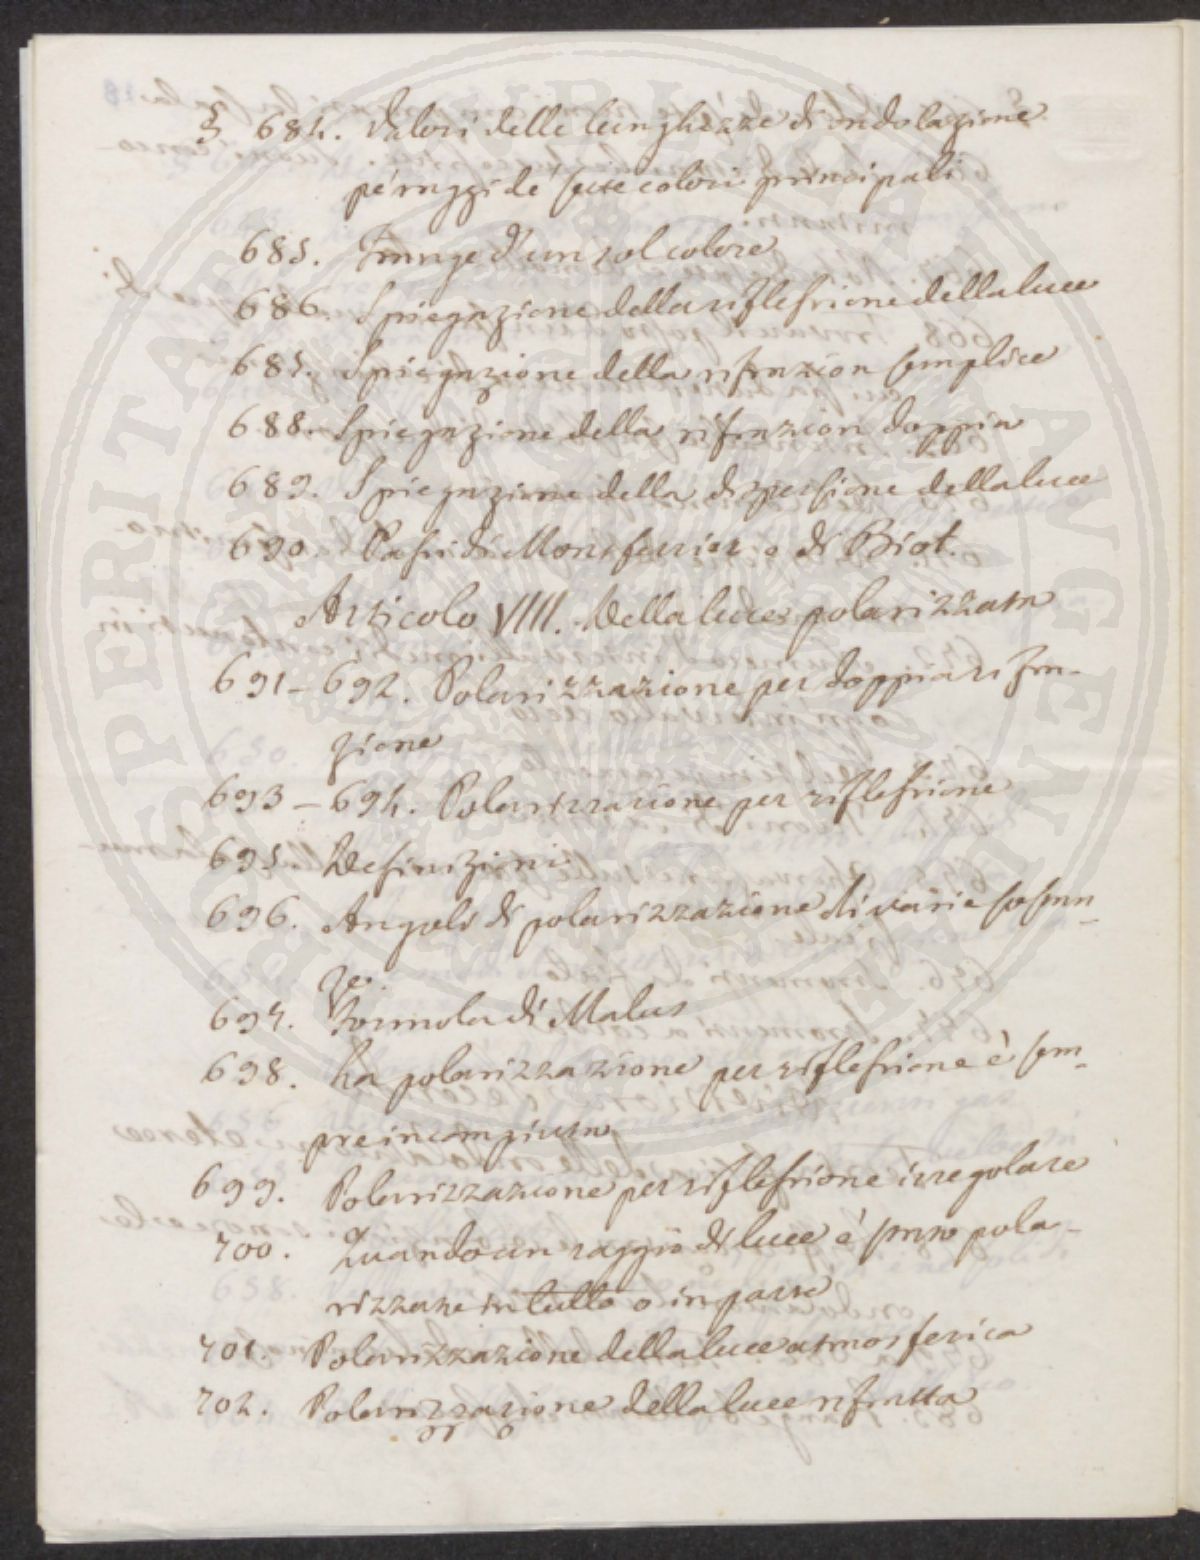 § 684. Valori delle lunghezze di ondolazione
pe' raggi de' sette colori principali
685. Frange d'un sol colore
686. Spiegazione della riflessione della luce
687. Spiegazione della rifrazion semplice
688. Spiegazione della rifrazion doppia
689. Spiegazione della dispersione della luce
690. Passi di Monsferrier e di Biot.
Articolo VIII. Della luce polarizzata
691–692. Polarizzazione per doppia rifra-
zione
693–694. Polarizzazione per riflessione
695. Definizioni
696. Angoli di polarizzazione di varie sostan-
ze.
697. Formola di Malus
698. La polarizzazione per riflessione è sem-
pre incompiuta
699. Polarizzazione per riflessione irregolare
700. Quando un raggio di luce è pola-
rizzato in tutto o in parte
701. Polarizzazione della luce atmosferica
702. Polarizzazione della luce rifratta
VERITATE PVBLICA AVGENDA